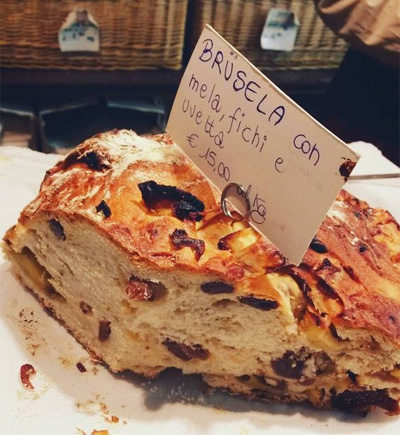 BRUSELA con
mela, fichi e
uvetta
€ 15,00 al/Kg